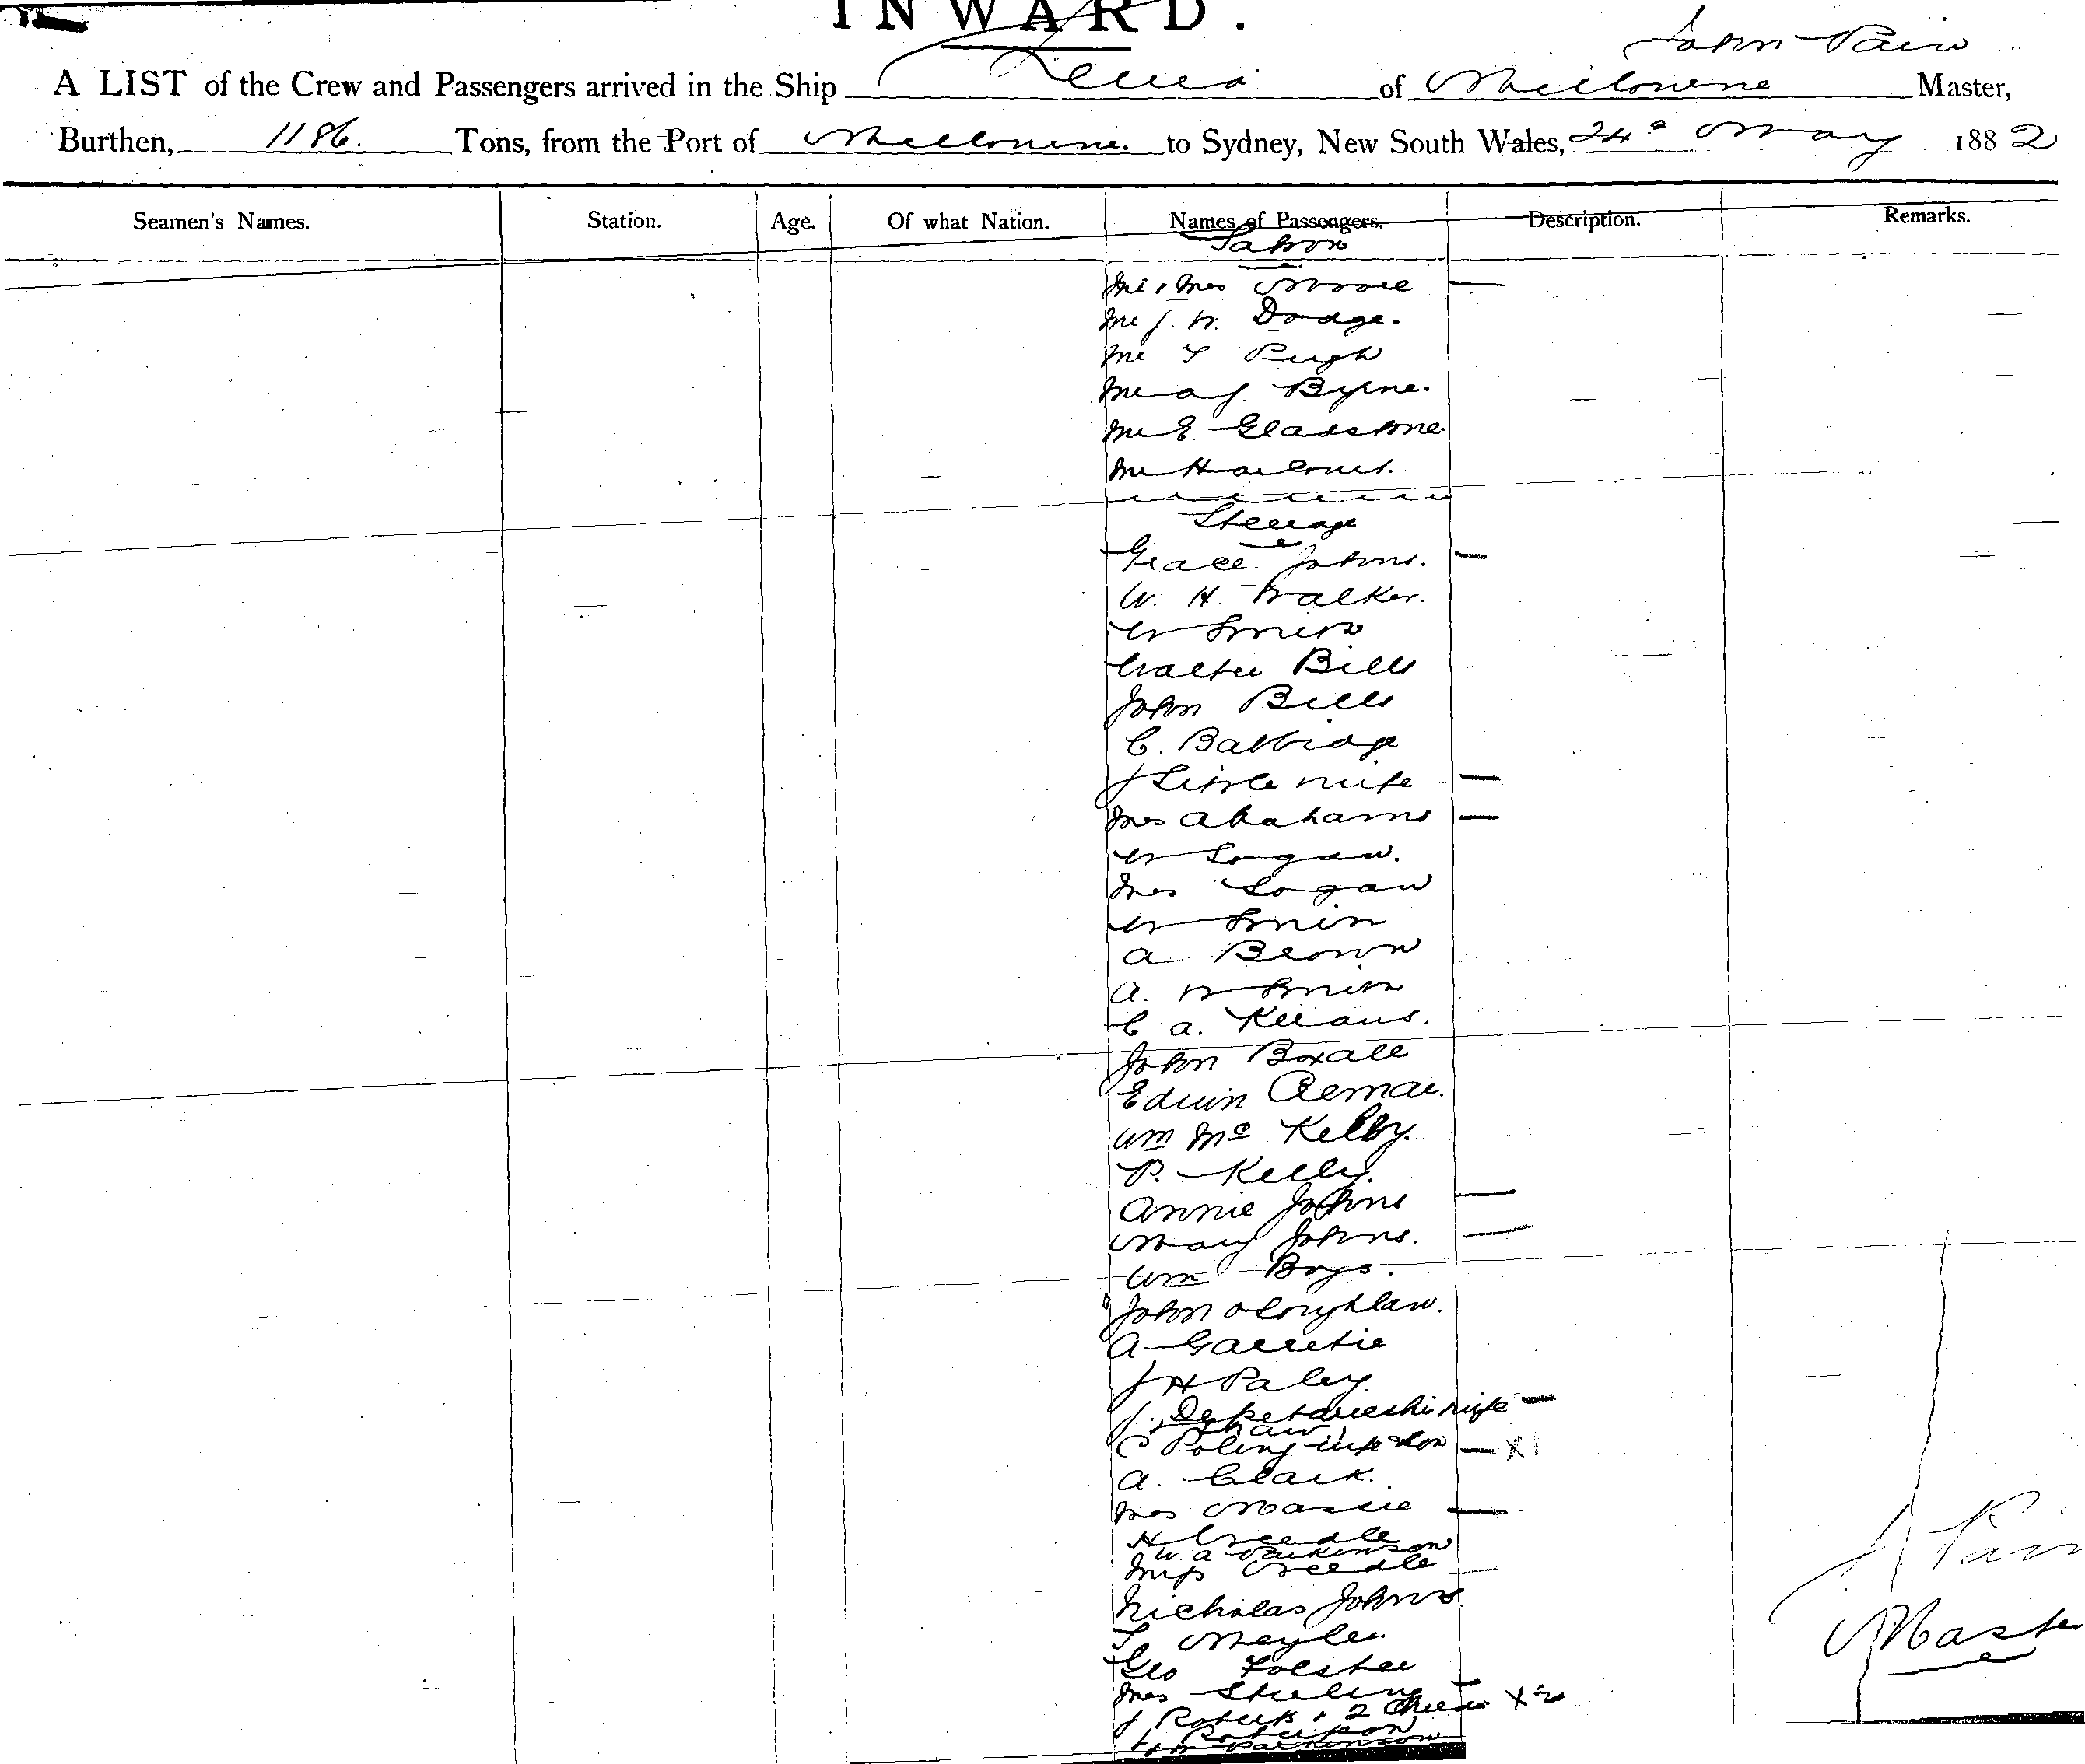 INWARD.
John Pain
A LIST of the Crew and Passengers arrived in the Ship of Melbourne Master,
Burthen, 1186. Tons, from the Port of Melbourne. to Sydney, New South Wales, 24th May 1882
Seamen's Names. Station. Age. Of what Nation. Names of Passengers. Description. Remarks.
Saloon
Mr & Mrs Moore —
Mr J. W. Dodge.
Mr T Pugh
Mr A J. Byrne.
Mr E. Gladstone
Mr Harcourt.
Steerage
Grace Johns. —
W. H. Walker.
W Smith
Walter Bills
John Bills
C.
J Little wife —
Mrs Abrahams —
W Logan.
Mrs Logan
W Smith
A Brown
A. W Smith
C A.
John Boxall
Edwin
Wm Mc Kelly.
P. Kelly.
Annie Johns —
Mary Johns. —
Wm Boys.
John O Loughlan.
A
J H Paley.
J. wife —
Shaw
C Poling wife & son — X1
A. Clark.
Mrs Massie —
H Creedle
W. A Parkinson
Miss Creedle —
Nicholas Johns
T
Geo
Mrs Stirling —
J Roberts & 2 Children X2
Robertson
Parkinson
J Pain
Master